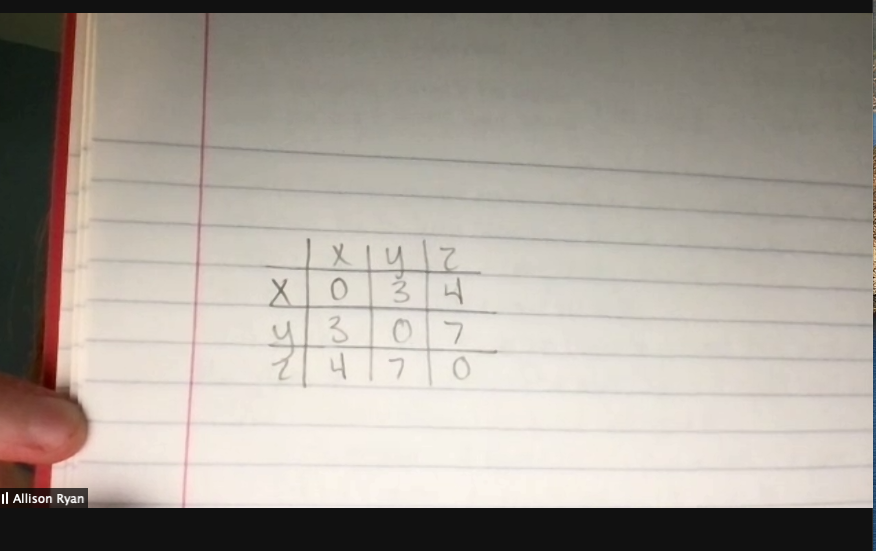 x y z
x 0 3 4
y 3 0 7
z 4 7 0
Allison Ryan